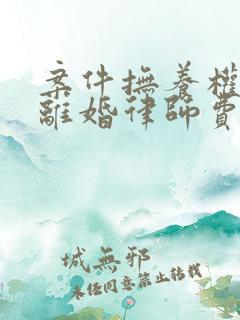 案件撫養權
離婚律師費
城無邪
未经同意禁止转载